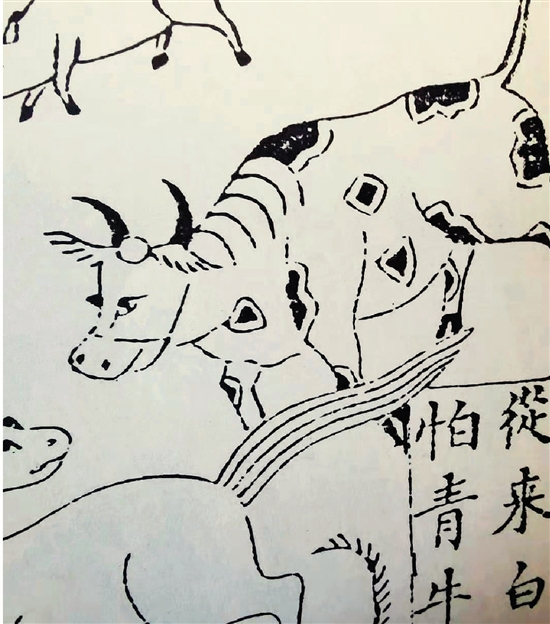 從来白
怕青牛